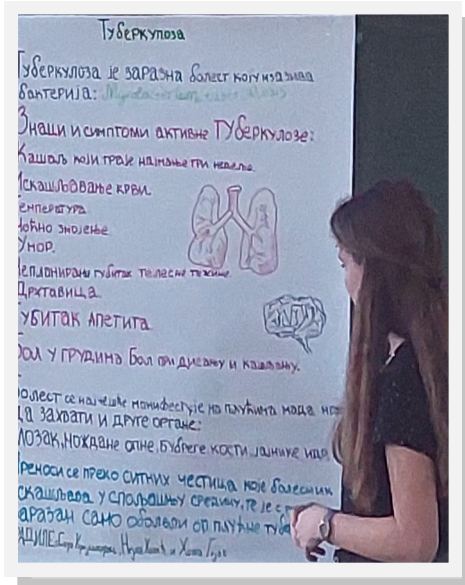 Туберкулоза
Туберкулоза је заразна болест коју изазива
бактерија:
Знаци и симптоми активне Туберкулозе:
Кашаљ који траје најмање три недеље.
Искашљавање крви.
Температура
Ноћно знојење
Умор.
Непланирани губитак телесне тежине
Дрхтавица
Губитак апетита
Бол у грудима. Бол при дисању и кашљању.
Болест се најчешће манифестује на плућима мада
да захвати и друге органе:
мозак, мождане опне, бубреге, кости, јајнике итд.
Преноси се преко ситних честица које болесник
искашљава у спољашњу средину, те је
заразан само оболели од плућне